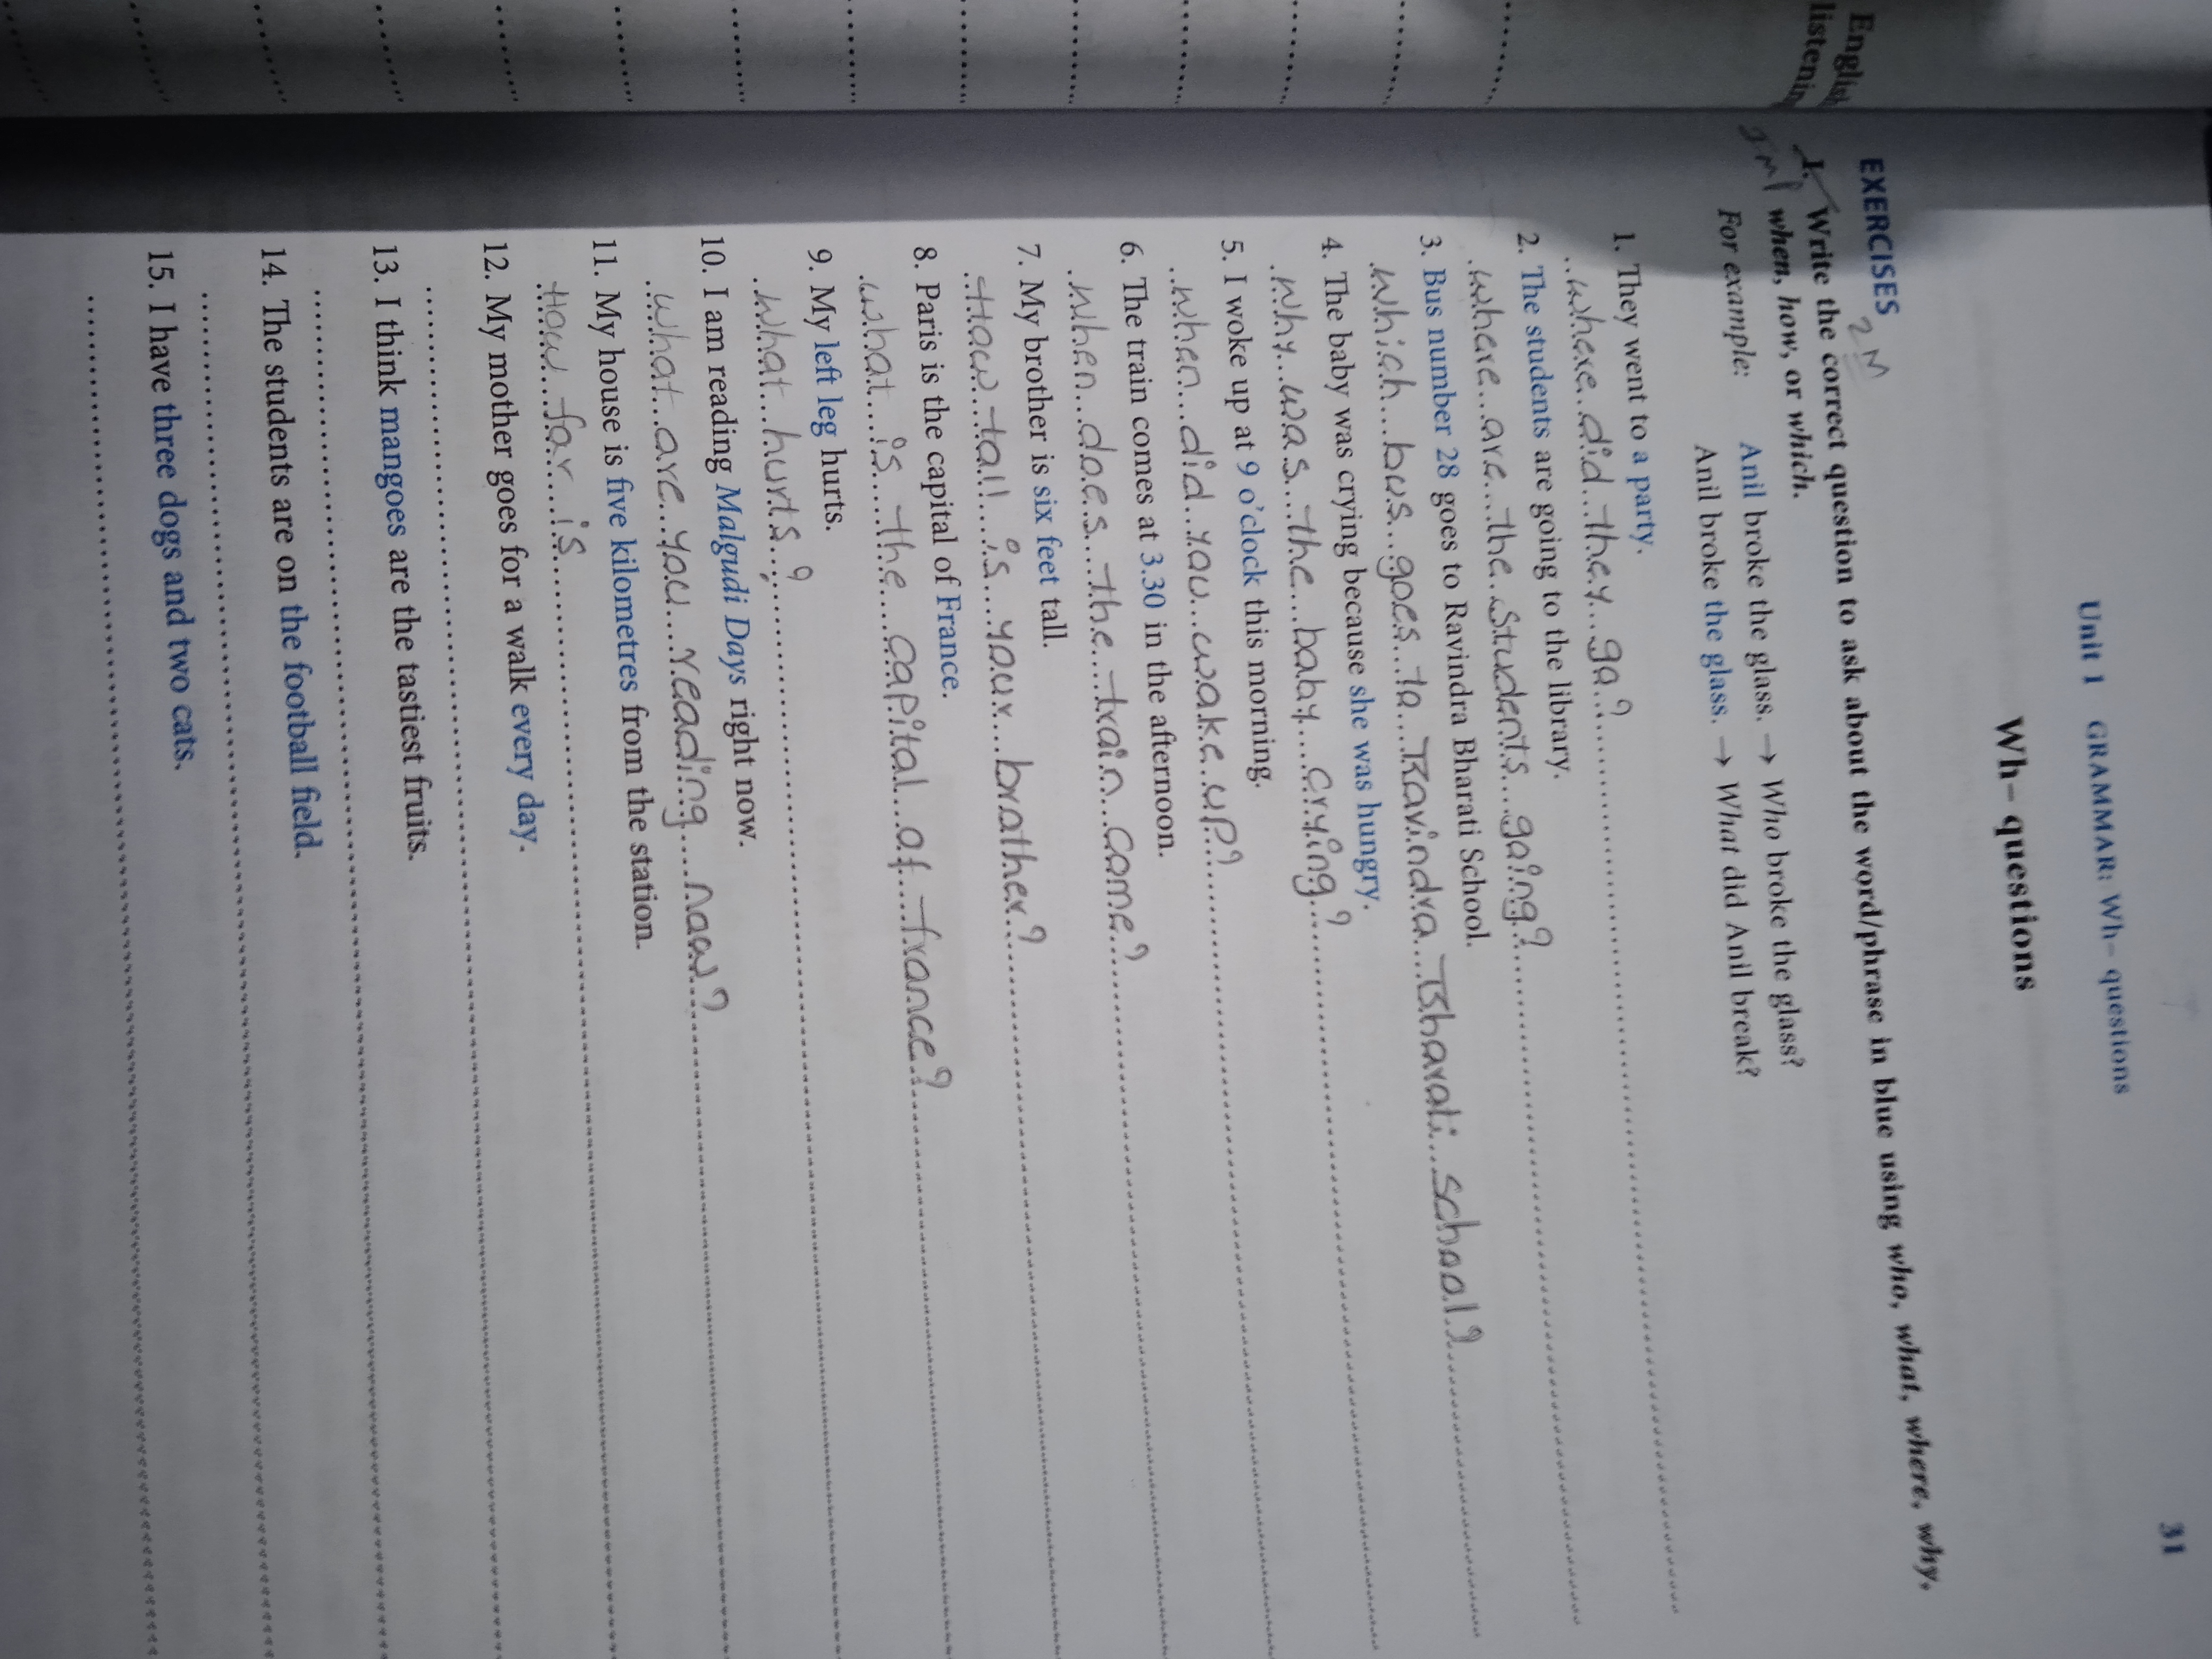 English
listenin
31
Unit 1 GRAMMAR: Wh– questions
Wh– questions
EXERCISES 2M
1. Write the correct question to ask about the word/phrase in blue using who, what, where, why,
when, how, or which.
For example: Anil broke the glass. → Who broke the glass?
Anil broke the glass. → What did Anil break?
1. They went to a party.
where did they go?
2. The students are going to the library.
where are the students going?
3. Bus number 28 goes to Ravindra Bharati School.
which bus goes to Ravindra Bharati school?
4. The baby was crying because she was hungry.
why was the baby crying?
5. I woke up at 9 o'clock this morning.
when did you wake up?
6. The train comes at 3.30 in the afternoon.
when does the train come?
7. My brother is six feet tall.
How tall is your brother?
8. Paris is the capital of France.
what is the capital of france?
9. My left leg hurts.
what hurts?
10. I am reading Malgudi Days right now.
what are you reading now?
11. My house is five kilometres from the station.
How far is
12. My mother goes for a walk every day.
13. I think mangoes are the tastiest fruits.
14. The students are on the football field.
15. I have three dogs and two cats.